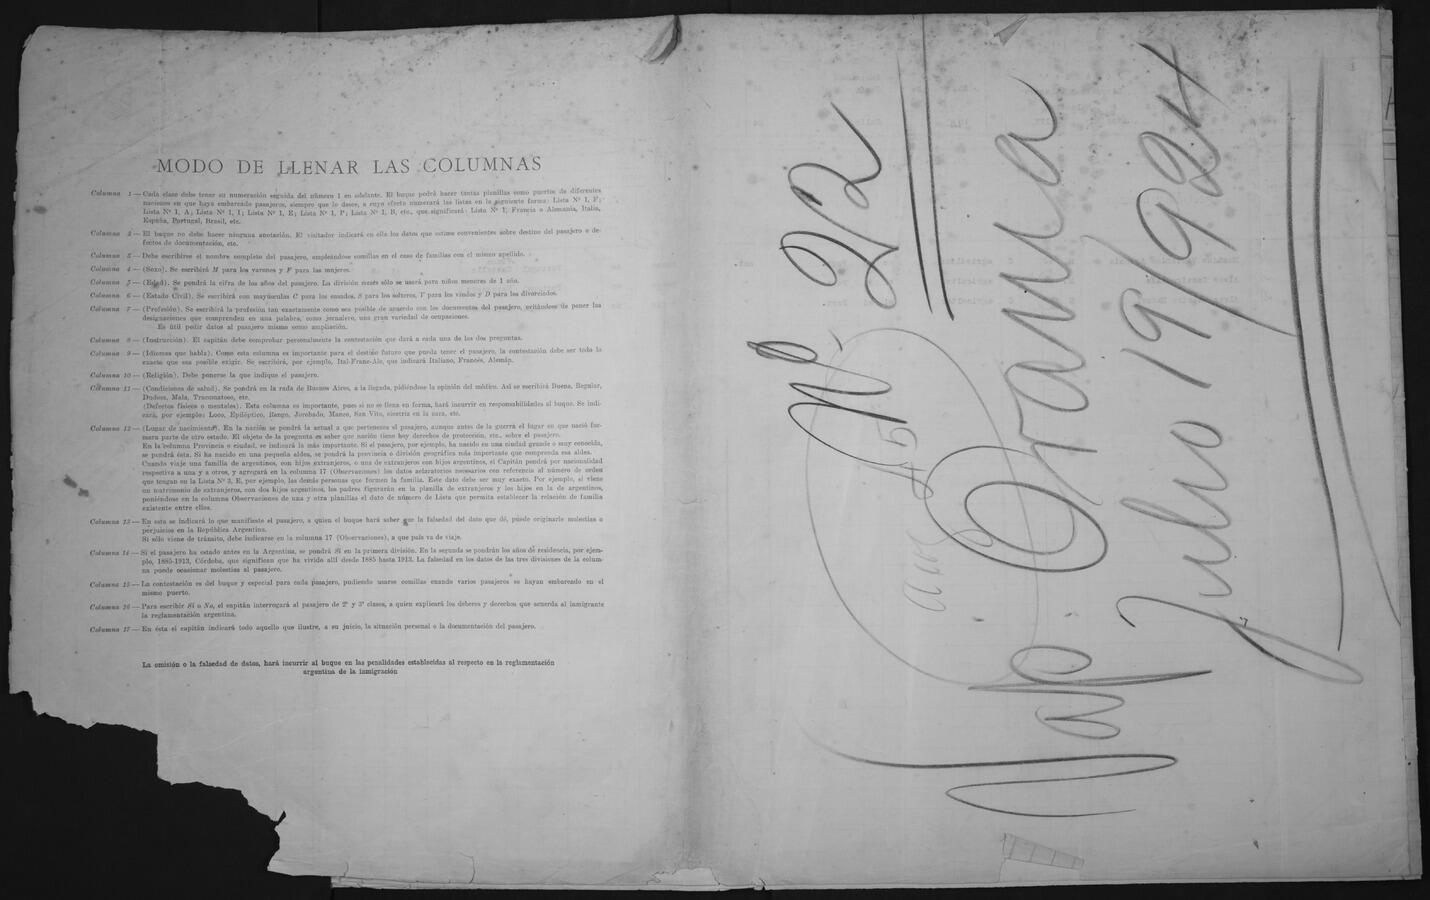 MODO DE LLENAR LAS COLUMNAS
Columna 1 — Cada clase debe tener su numeración seguida del número 1 en adelante. El buque podrá hacer tantas planillas como puertos de diferentes
naciones en que haya embarcado pasajeros, siempre que lo desee, a cuyo efecto numerará las listas en la siguiente forma: Lista Nº 1, F;
Lista Nº 1, A; Lista Nº 1, I; Lista Nº 1, E; Lista Nº 1, P; Lista Nº 1, B, etc., que significará: Lista Nº 1, Francia o Alemania, Italia,
España, Portugal, Brasil, etc.
Columna 2 — El buque no debe hacer ninguna anotación. El visitador indicará en ella los datos que estime convenientes sobre destino del pasajero o de-
fectos de documentación, etc.
Columna 3 — Debe escribirse el nombre completo del pasajero, empleándose comillas en el caso de familias con el mismo apellido.
Columna 4 — (Sexo). Se escribirá M para los varones y F para las mujeres.
Columna 5 — (Edad). Se pondrá la cifra de los años del pasajero. La división meses sólo se usará para niños menores de 1 año.
Columna 6 — (Estado Civil). Se escribirá con mayúsculas C para los casados, S para los solteros, V para los viudos y D para los divorciados.
Columna 7 — (Profesión). Se escribirá la profesión tan exactamente como sea posible de acuerdo con los documentos del pasajero, evitándose de poner las
designaciones que comprenden en una palabra, como jornalero, una gran variedad de ocupaciones.
Es útil pedir datos al pasajero mismo como ampliación.
Columna 8 — (Instrucción). El capitán debe comprobar personalmente la contestación que dará a cada una de las dos preguntas.
Columna 9 — (Idiomas que habla). Como esta columna es importante para el destino futuro que pueda tener el pasajero, la contestación debe ser todo lo
exacto que sea posible exigir. Se escribirá, por ejemplo, Ital-Franc-Ale, que indicará Italiano, Francés, Alemán.
Columna 10 — (Religión). Debe ponerse la que indique el pasajero.
Columna 11 — (Condiciones de salud). Se pondrá en la rada de Buenos Aires, a la llegada, pidiéndose la opinión del médico. Así se escribirá Buena, Regular,
Dudosa, Mala, Tracomatoso, etc.
(Defectos físicos o mentales). Esta columna es importante, pues si no se llena en forma, hará incurrir en responsabilidades al buque. Se indi-
cará, por ejemplo: Loco, Epiléptico, Rengo, Jorobado, Manco, San Vito, cicatriz en la cara, etc.
Columna 12 — (Lugar de nacimiento). En la nación se pondrá la actual a que pertenezca el pasajero, aunque antes de la guerra el lugar en que nació for-
mara parte de otro estado. El objeto de la pregunta es saber que nación tiene hoy derechos de protección, etc., sobre el pasajero.
En la columna Provincia o ciudad, se indicará la más importante. Si el pasajero, por ejemplo, ha nacido en una ciudad grande o muy conocida,
se pondrá ésta. Si ha nacido en una pequeña aldea, se pondrá la provincia o división geográfica más importante que comprenda esa aldea.
Cuando viaje una familia de argentinos, con hijos extranjeros, o una de extranjeros con hijos argentinos, el Capitán pondrá por nacionalidad
respectiva a una y a otros, y agregará en la columna 17 (Observaciones) los datos aclaratorios necesarios con referencia al número de orden
que tengan en la Lista Nº 3, E, por ejemplo, las demás personas que formen la familia. Este dato debe ser muy exacto. Por ejemplo, si viene
un matrimonio de extranjeros, con dos hijos argentinos, los padres figurarán en la planilla de extranjeros y los hijos en la de argentinos,
poniéndose en la columna Observaciones de una y otra planillas el dato de número de Lista que permita establecer la relación de familia
existente entre ellos.
Columna 13 — En esta se indicará lo que manifieste el pasajero, a quien el buque hará saber que la falsedad del dato que dé, puede originarle molestias o
perjuicios en la República Argentina.
Si sólo viene de tránsito, debe indicarse en la columna 17 (Observaciones), a que país va de viaje.
Columna 14 — Si el pasajero ha estado antes en la Argentina, se pondrá Sí en la primera división. En la segunda se pondrán los años de residencia, por ejem-
plo, 1885-1913, Córdoba, que significan que ha vivido allí desde 1885 hasta 1913. La falsedad en los datos de las tres divisiones de la colum-
na puede ocasionar molestias al pasajero.
Columna 15 — La contestación es del buque y especial para cada pasajero, pudiendo usarse comillas cuando varios pasajeros se hayan embarcado en el
mismo puerto.
Columna 16 — Para escribir Sí o No, el capitán interrogará al pasajero de 2ª y 3ª clases, a quien explicará los deberes y derechos que acuerda al inmigrante
la reglamentación argentina.
Columna 17 — En ésta el capitán indicará todo aquello que ilustre, a su juicio, la situación personal o la documentación del pasajero.
La omisión o la falsedad de datos, hará incurrir al buque en las penalidades establecidas al respecto en la reglamentación
argentina de la inmigración
Nº 212
Vap. Orania
Julio 19/924